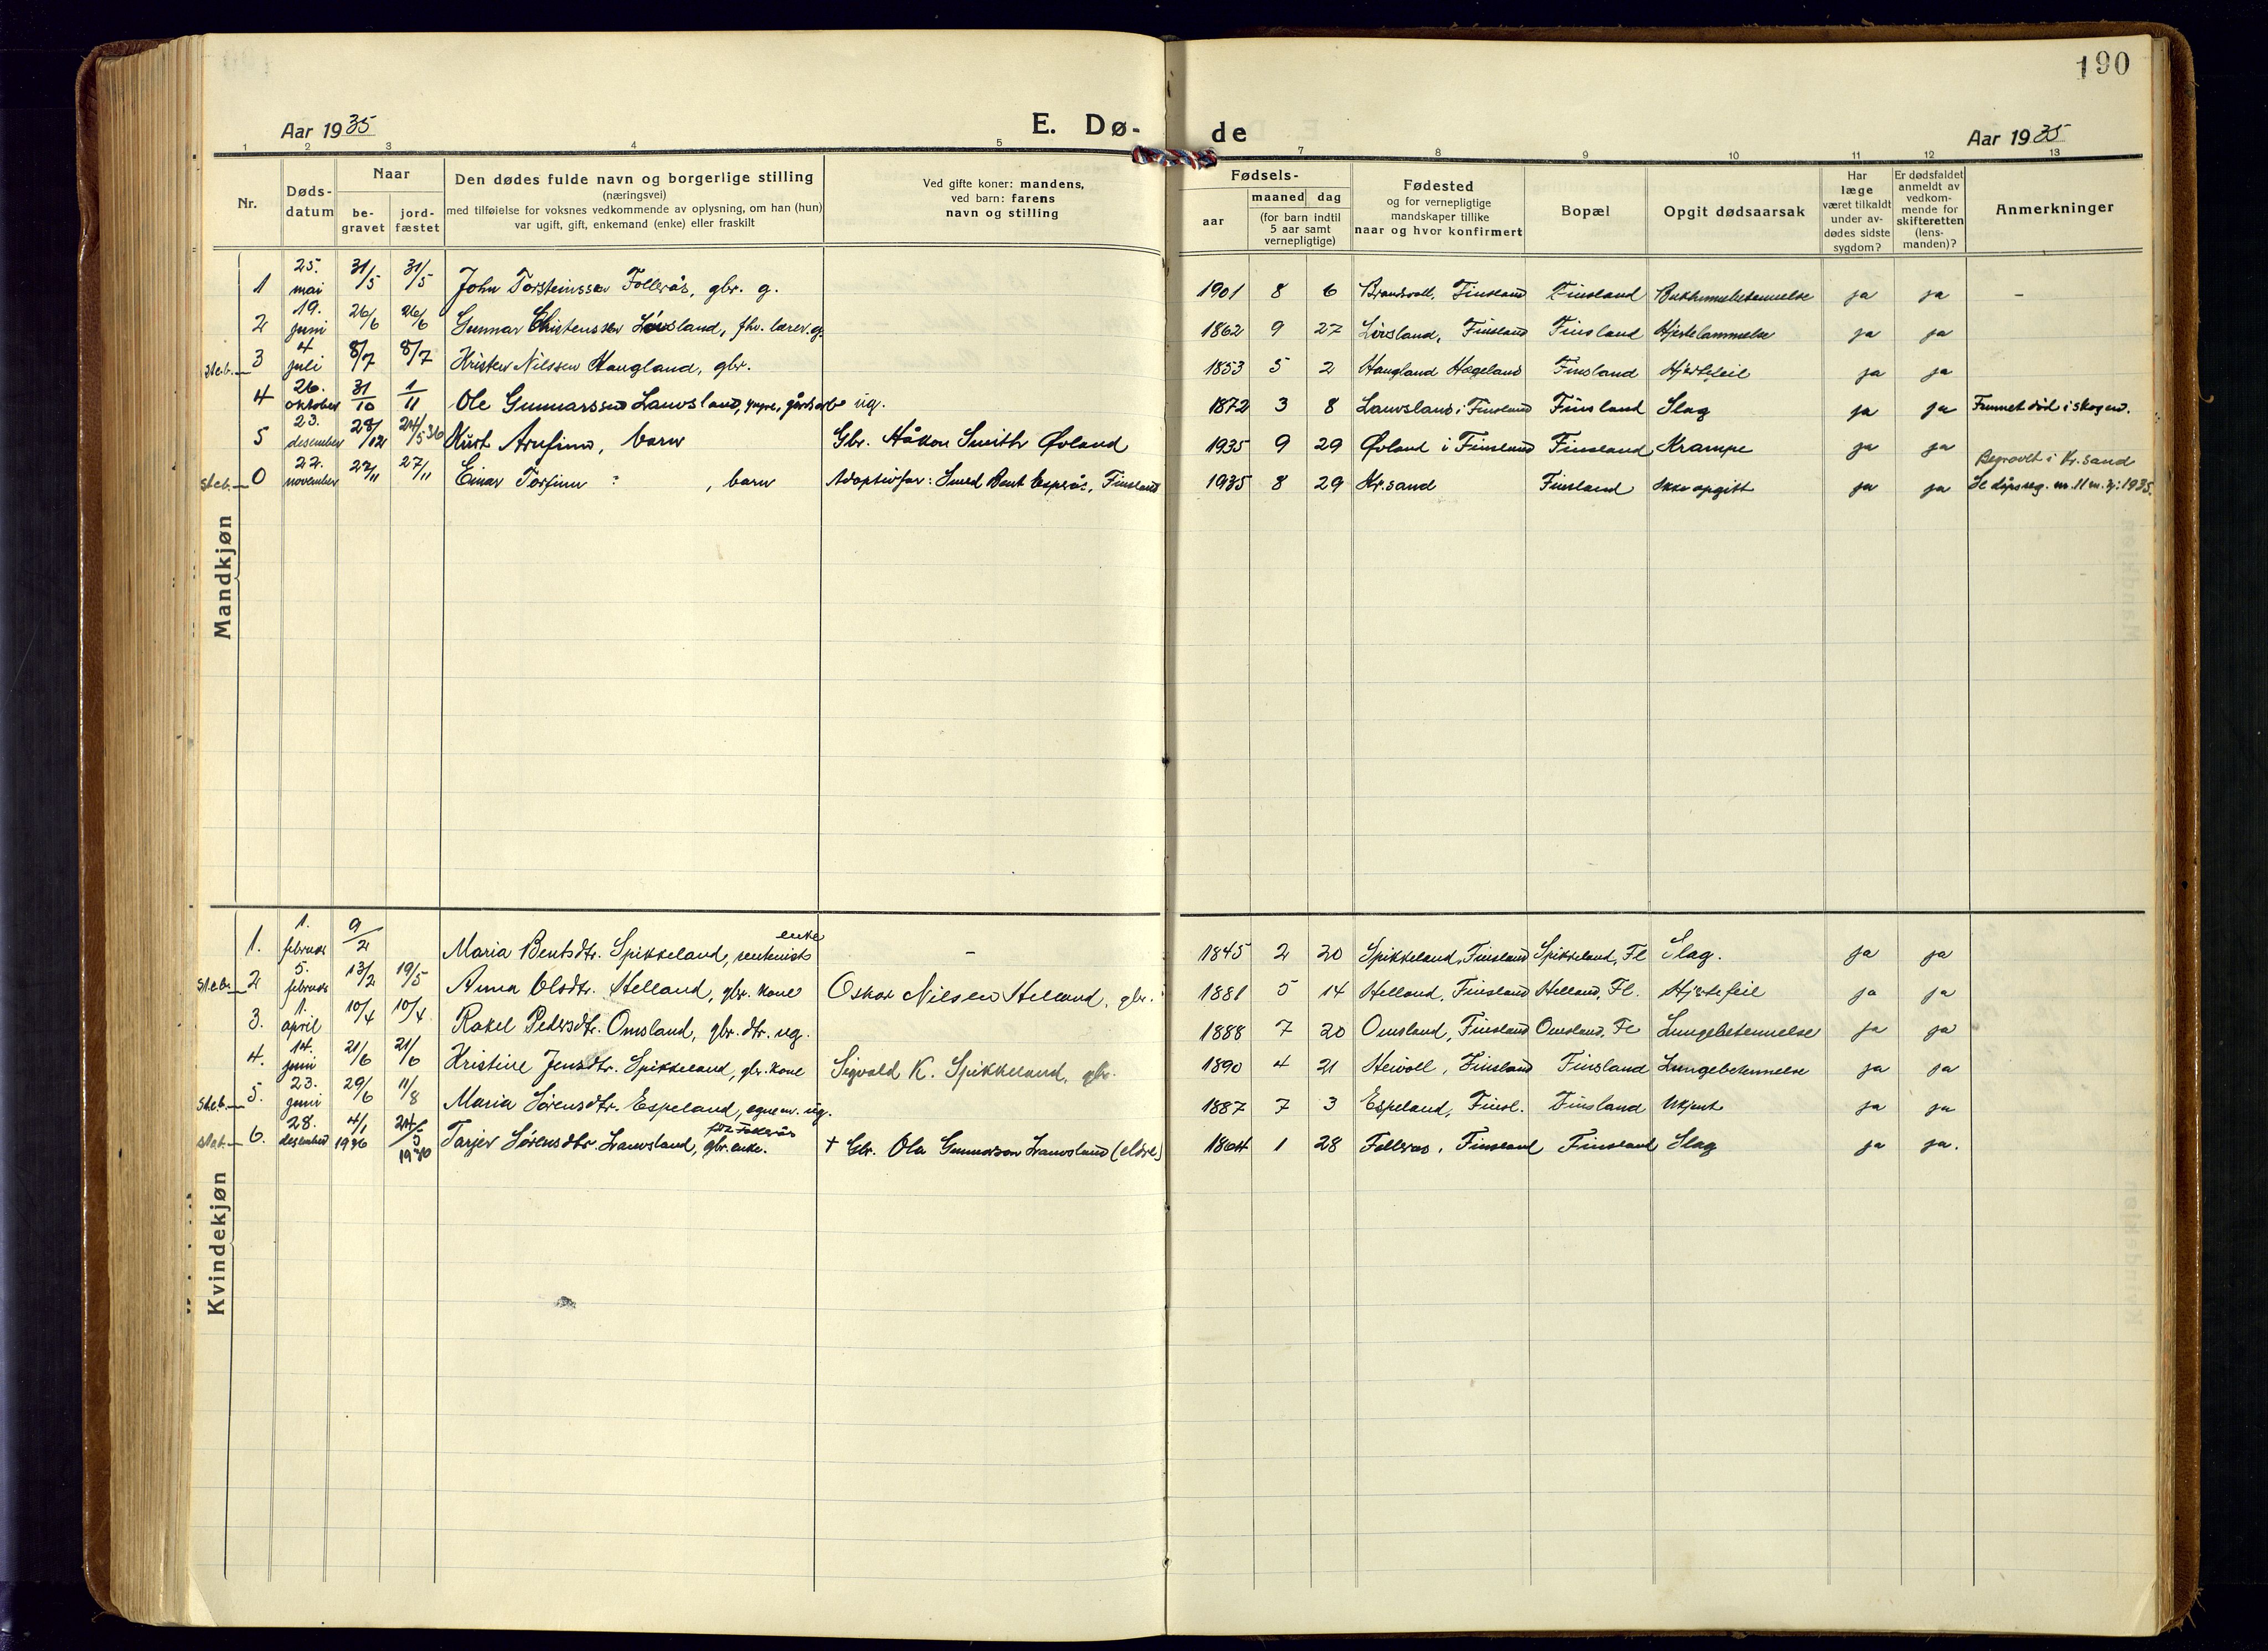 190
Aar 1935 E. Dø- de Aar 1935
1 2 3 4 5 7 8 9 10 11 12 13
Nr.
Døds-
datum
Naar
be-
gravet
jord-
fæstet
Den dødes fulde navn og borgerlige stilling
(næringsvei)
med tilføielse for voksnes vedkommende av oplysning, om han (hun)
var ugift, gift, enkemand (enke) eller fraskilt
Ved gifte koner: mandens,
ved barn: farens
navn og stilling
Fødsels-
aar
maaned dag
(for barn indtil
5 aar samt
vernepligtige)
Fødested
og for vernepligtige
mandskaper tillike
naar og hvor konfirmert
Bopæl
Opgit dødsaarsak
Har
læge
været tilkaldt
under av-
dødes sidste
sygdom?
Er dødsfaldet
anmeldt av
vedkom-
mende for
skifteretten
(lens-
manden)?
Anmerkninger
Mandkjøn
1 25. mai 31/5 31/5 John Torsteinssen Follerås, gbr. g. 1901 8 6 Brandsvoll, Finsland Finsland Bukhinnebetennelse ja ja –
2 19. juni 26/6 26/6 Gunnar Christenssen Løvsland, fhv. lærer. g. 1862 9 27 Løvsland, Finsland Finsland Hjertelammelse ja ja
st.e.b. 3 4 juli 8/7 8/7 Kristen Nilssen Haugland, gbr. 1853 5 2 Haugland Hægeland Finsland Hjertefeil ja ja
4 26. oktober 31/10 1/11 Ole Gunnarssen Lauvsland, yngre, gårdsarb. ug. 1872 3 8 Lauvsland i Finsland Finsland Slag ja ja Funnet død i skogen.
5 23. desember 28/12 24/5 36 Kurt Arnfinn, barn Gbr. Håkon Smith Øvland 1935 9 29 Øvland i Finsland Finsland Krampe ja ja
st.e.b. 0 22. november 27/11 27/11 Einar Torfinn ? , barn Adoptivfar: Smed Bent Esperås, Finsland 1935 8 29 Kr.sand Finsland Ikke opgitt ja ja Begravet i Kr.sand
Se dåpsreg. nr. 11 m. kj. 1935.
Kvindekjøn
1. 1. februar 9/2 Maria Bentsdtr. Spikkeland, rentenist enke – 1845 2 20 Spikkeland, Finsland Spikkeland, Fl Slag. ja ja
st.e.b. 2 5. februar 13/2 19/5 Anna Olsdtr. Helland, gbr. kone Oskar Nilsen Helland, gbr. 1881 5 14 Helland, Finsland Helland, Fl. Hjertefeil ja ja
3. 1. april 10/4 10/4 Rakel Pedersdtr. Omsland, gbr. dtr. ug. 1888 7 20 Omsland, Finsland Omsland, Fl Lungebetennelse ja ja
4. 14. juni 21/6 21/6 Kristine Jensdtr. Spikkeland, gbr. kone Sigvald K. Spikkeland, gbr. 1890 4 21 Heivoll, Finsland Finsland Lungebetennelse ja ja
st.e.b. 5. 23. juni 29/6 11/8 Maria Sørensdtr. Espeland, ug. 1887 7 3 Espeland, Finsl. Finsland Ukjent ja ja
st.e.b. 6. 28. desember 4/1 1936 24/5 1936 Tarjer Sørensdtr. Lauvsland, født Follerås gbr. enke. + Gbr. Ola Gunnarson Lauvsland (eldre) 1864 1 28 Follerås, Finsland Finsland Slag ja ja.